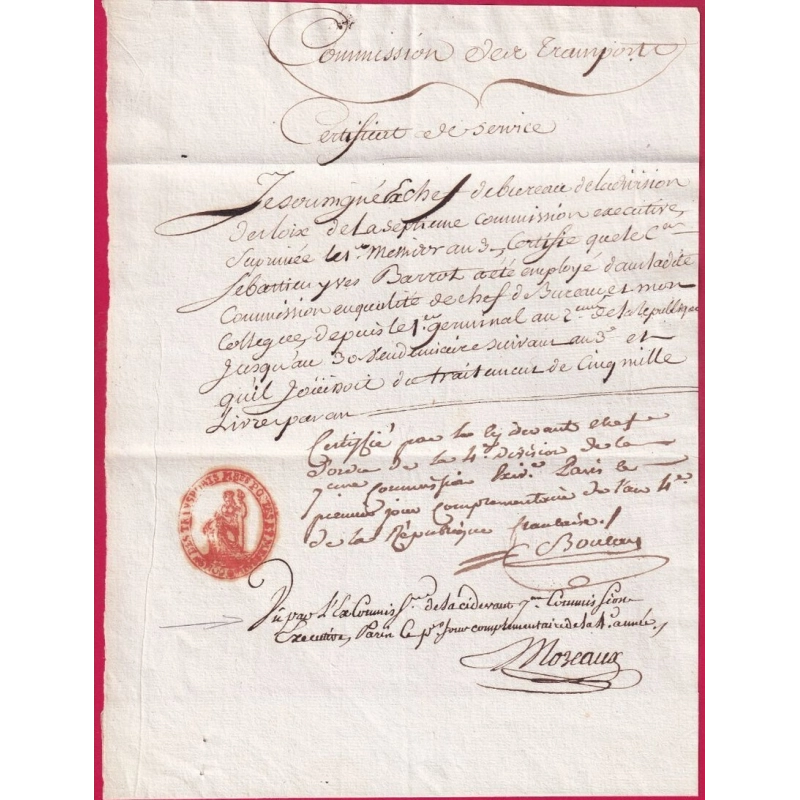 Commission des Transports
Certificat de Service
Je soussigné Exchef de bureau de la division
des loix de la septieme commission executive,
suprimée le 1er Messidor an 3e, Certifie que le Cen
Sebastien yves Barrot a été employé dans ladite
Commission en qualité de chef de Bureau et mon
Collegue, depuis le 1er germinal an 2eme de la Republique
Jusqu'au 30 Vendemiaire suivant an 3e et
qu'il Jouissoit du traitement de Cinq mille
Livres par an
Certiffié par le cy devant chef
de la 4e division de la
7eme Commission Paris le
premier jour complementaire de l'an 4e
de la République francaise.
Vu par l'Ex Commisre de la cidevant 7me Commission
Executive, Paris le per Jour complementaire de la 4e année,
Moreaux